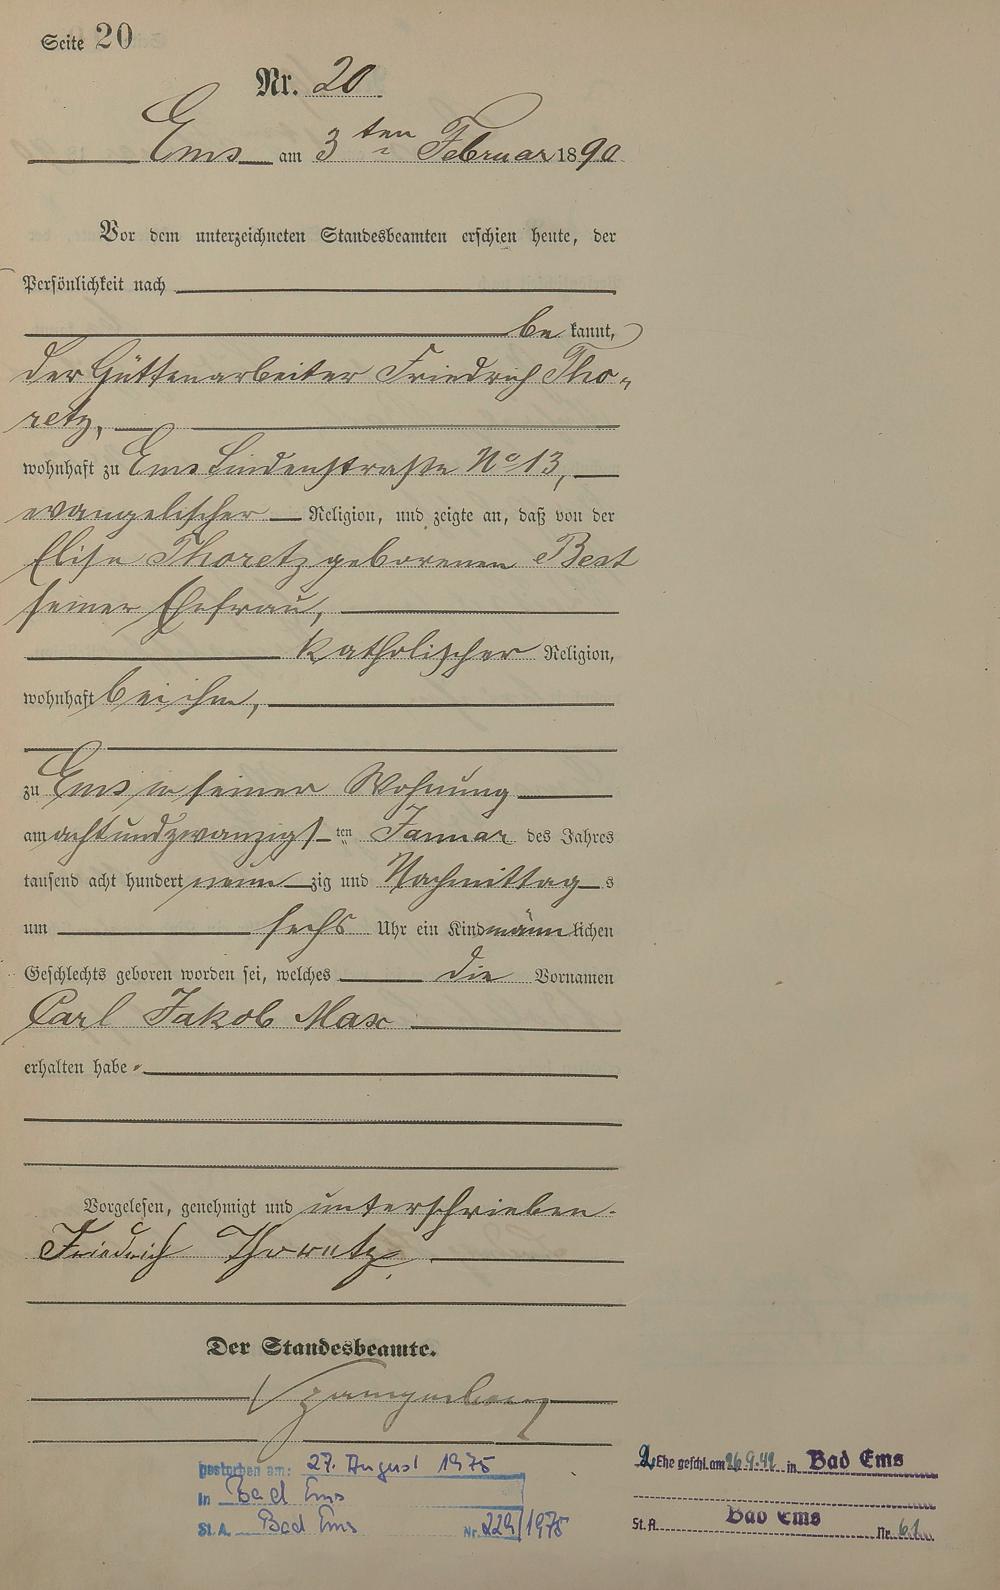 Seite 20
Nr. 20
Ems am 3ten Februar 1890
Vor dem unterzeichneten Standesbeamten erschien heute, der
Persönlichkeit nach
be kannt,
der Hüttenarbeiter Friedrich Tho-
retz,
wohnhaft zu Ems Lindenstraße No 13,
evangelischer Religion, und zeigte an, daß von der
Elise Thoretz geborenen Best
seiner Ehefrau,
katholischer Religion,
wohnhaft bei ihm,
zu Ems in seiner Wohnung
am achtundzwanzigsten Januar des Jahres
tausend acht hundert neunzig und Nachmittags
um sechs Uhr ein Kind männlichen
Geschlechts geboren worden sei, welches die Vornamen
Carl Jakob Max
erhalten habe.
Vorgelesen, genehmigt und unterschrieben.
Friedrich Thoretz
Der Standesbeamte.
gestorben am: 27. August 1975
in Bad Ems
St. A. Bad Ems Nr. 229/1975
2. Ehe geschl. am 26.9.42 in Bad Ems
St. A. Bad Ems Nr. 61